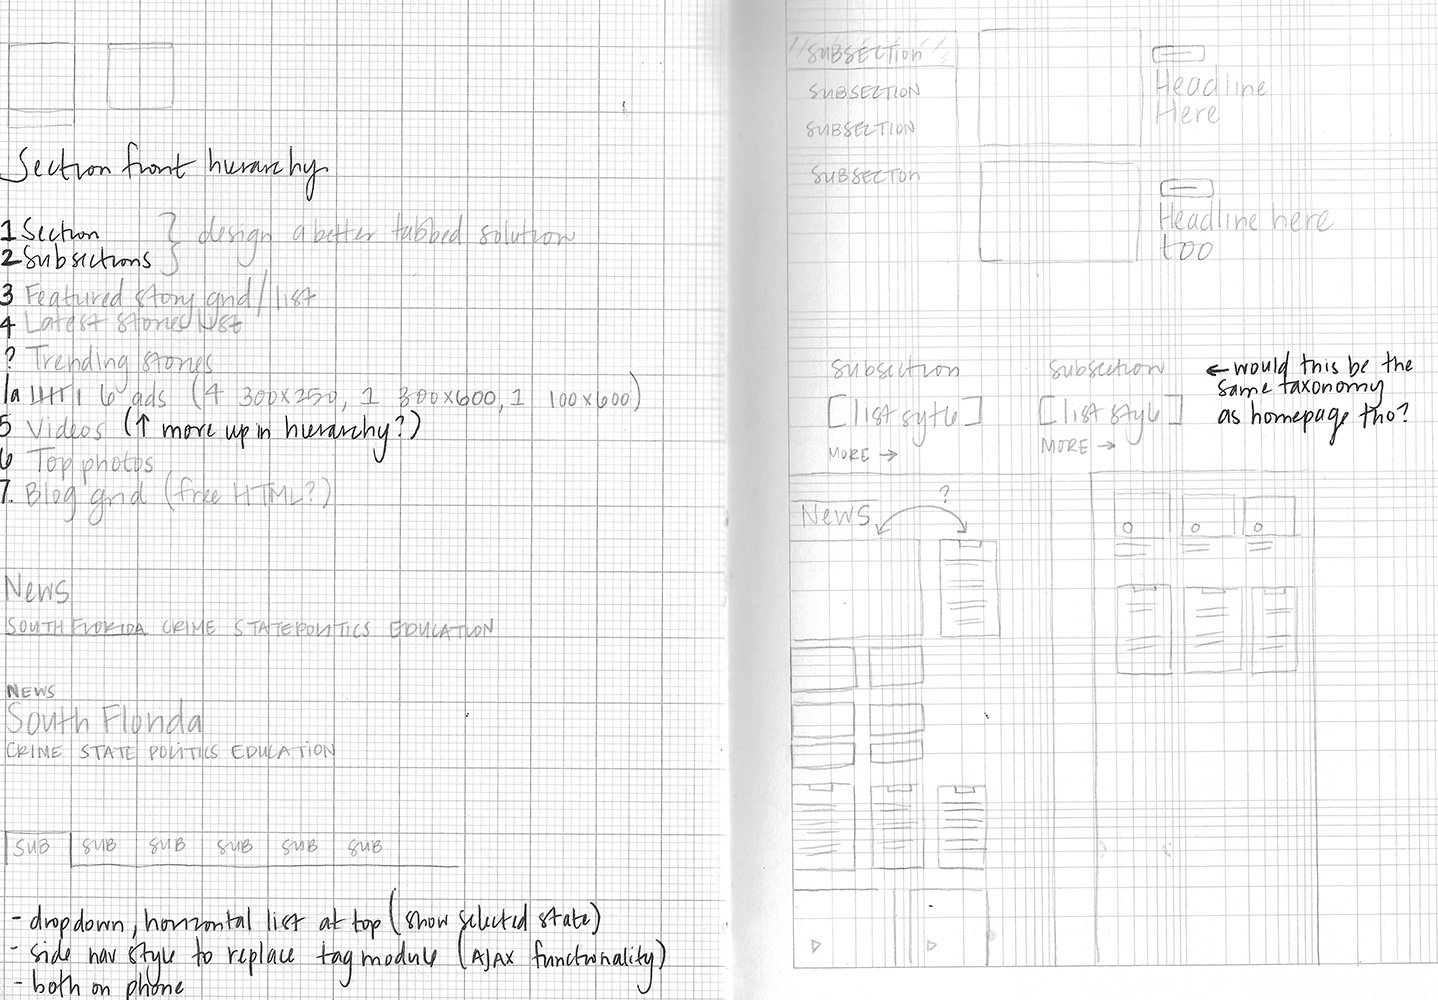 Section front hierarchy
1 Section } design a better tabbed solution
2 Subsections }
3 Featured story grid/list
4 Latest stories list
? Trending stories
1a 6 ads (4 300x250, 1 300x600, 1 100x600)
5 Videos (↑ move up in hierarchy?)
6 Top photos
7. Blog grid (free HTML?)
News
SOUTH FLORIDA CRIME STATE POLITICS EDUCATION
NEWS
South Florida
CRIME STATE POLITICS EDUCATION
SUB SUB SUB SUB SUB SUB
- dropdown, horizontal list at top (show selected state)
- side nav style to replace tag module (AJAX functionality)
- both on phone
SUBSECTION
SUBSECTION
SUBSECTION
SUBSECTON
Headline
Here
Headline here
too
Subsection
[list sytle]
MORE →
Subsection
[list style]
MORE →
← would this be the
same taxonomy
as homepage tho?
News
?